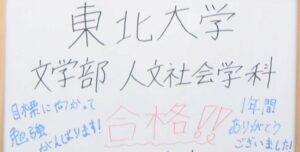 東北大学
文学部 人文社会学科
目標に向かって
勉強
がんばります!
合格!!
1年間
ありがとう
ございました!